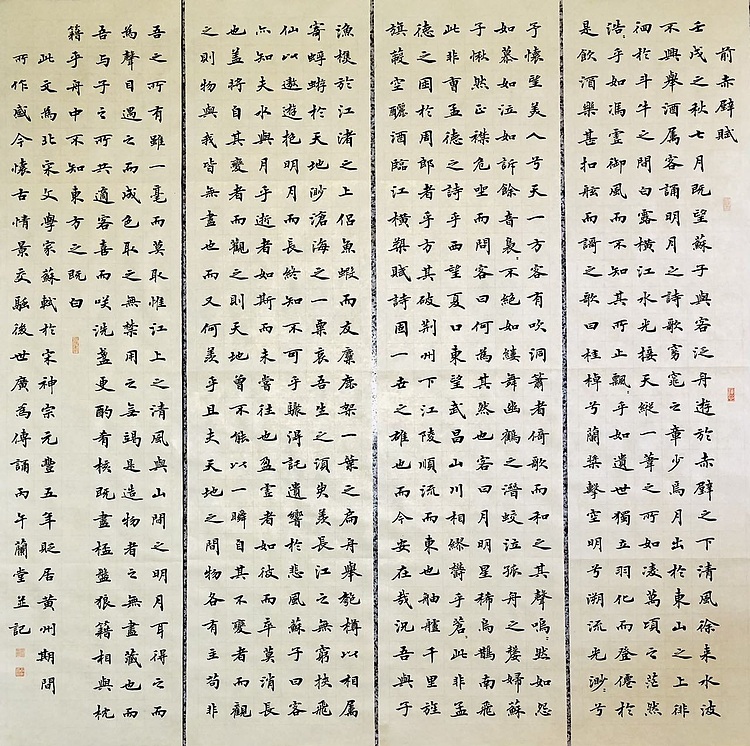 前赤壁賦
壬戌之秋七月既望蘇子與客泛舟遊於赤壁之下清風徐来水波
不興舉酒属客誦明月之詩歌窈窕之章少焉月出於東山之上徘
徊於斗牛之間白露橫江水光接天縱一葦之所如凌萬頃之茫然
浩々乎如馮虛御風而不知其所止飄々乎如遺世獨立羽化而登僊於
是飲酒樂甚扣舷而謌之歌曰桂棹兮蘭槳擊空明兮溯流光渺々兮
予懷望美人兮天一方客有吹洞簫者倚歌而和之其聲嗚々然如怨
如慕如泣如訴餘音裊々不絕如縷舞幽壑之潛蛟泣孤舟之嫠婦蘇
子愀然正襟危坐而問客曰何為其然也客曰月明星稀烏鵲南飛
此非曹孟德之詩乎西望夏口東望武昌山川相繆鬱乎蒼々此非孟
德之困於周郎者乎方其破荆州下江陵順流而東也舳艫千里旌
旗蔽空釃酒臨江橫槊賦詩固一世之雄也而今安在哉況吾與子
漁樵於江渚之上侶魚蝦而友麋鹿架一葉之扁舟舉匏樽以相属
寄蜉蝣於天地渺滄海之一粟哀吾生之須臾羨長江之無窮挾飛
仙以遨遊抱明月而長終知不可乎驟得託遺響於悲風蘇子曰客
亦知夫水與月乎逝者如斯而未嘗往也盈虛者如彼而卒莫消長
也蓋將自其變者而觀之則天地曾不能以一瞬自其不變者而觀
之則物與我皆無盡也而又何羨乎且夫天地之間物各有主苟非
吾之所有雖一毫而莫取惟江上之清風與山間之明月耳得之而
為聲目遇之而成色取之無禁用之無竭是造物者之無盡藏也而
吾与子之所共適客喜而咲洗盞更酌肴核既盡杯盤狼籍相與枕
籍乎舟中不知東方之既白
此文為北宋文學家蘇軾於宋神宗元豐五年貶居黄州期間
所作感今懷古情景交融後世廣為傳誦丙午蘭堂並記